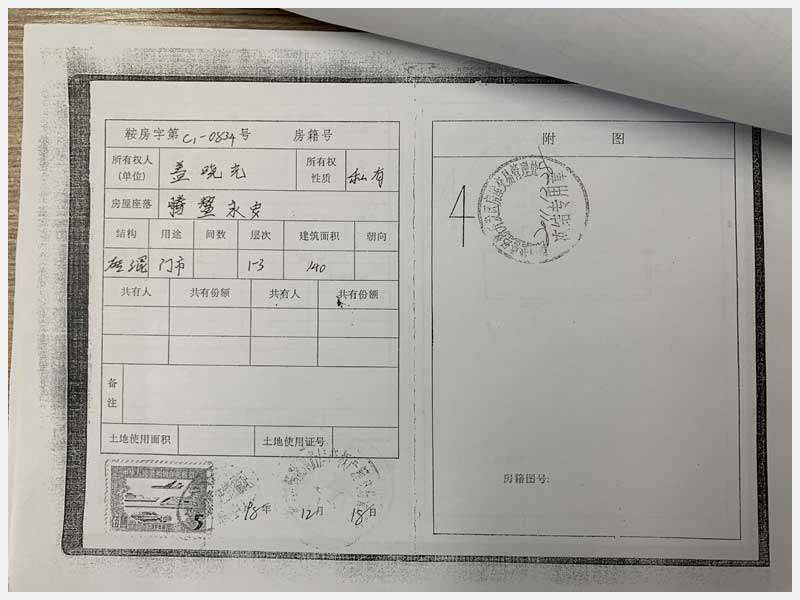 鞍房字第C1-0834号 房籍号
所有权人(单位) 盖晓光 所有权性质 私有
房屋座落
结构 用途 间数 层次 建筑面积 朝向
砖混 门市 1-3 140
共有人 共有份额 共有人 共有份额
备注
土地使用面积 土地使用证号
5
98年 12月 18日
附 图
4
冻结专用章
房籍图号: